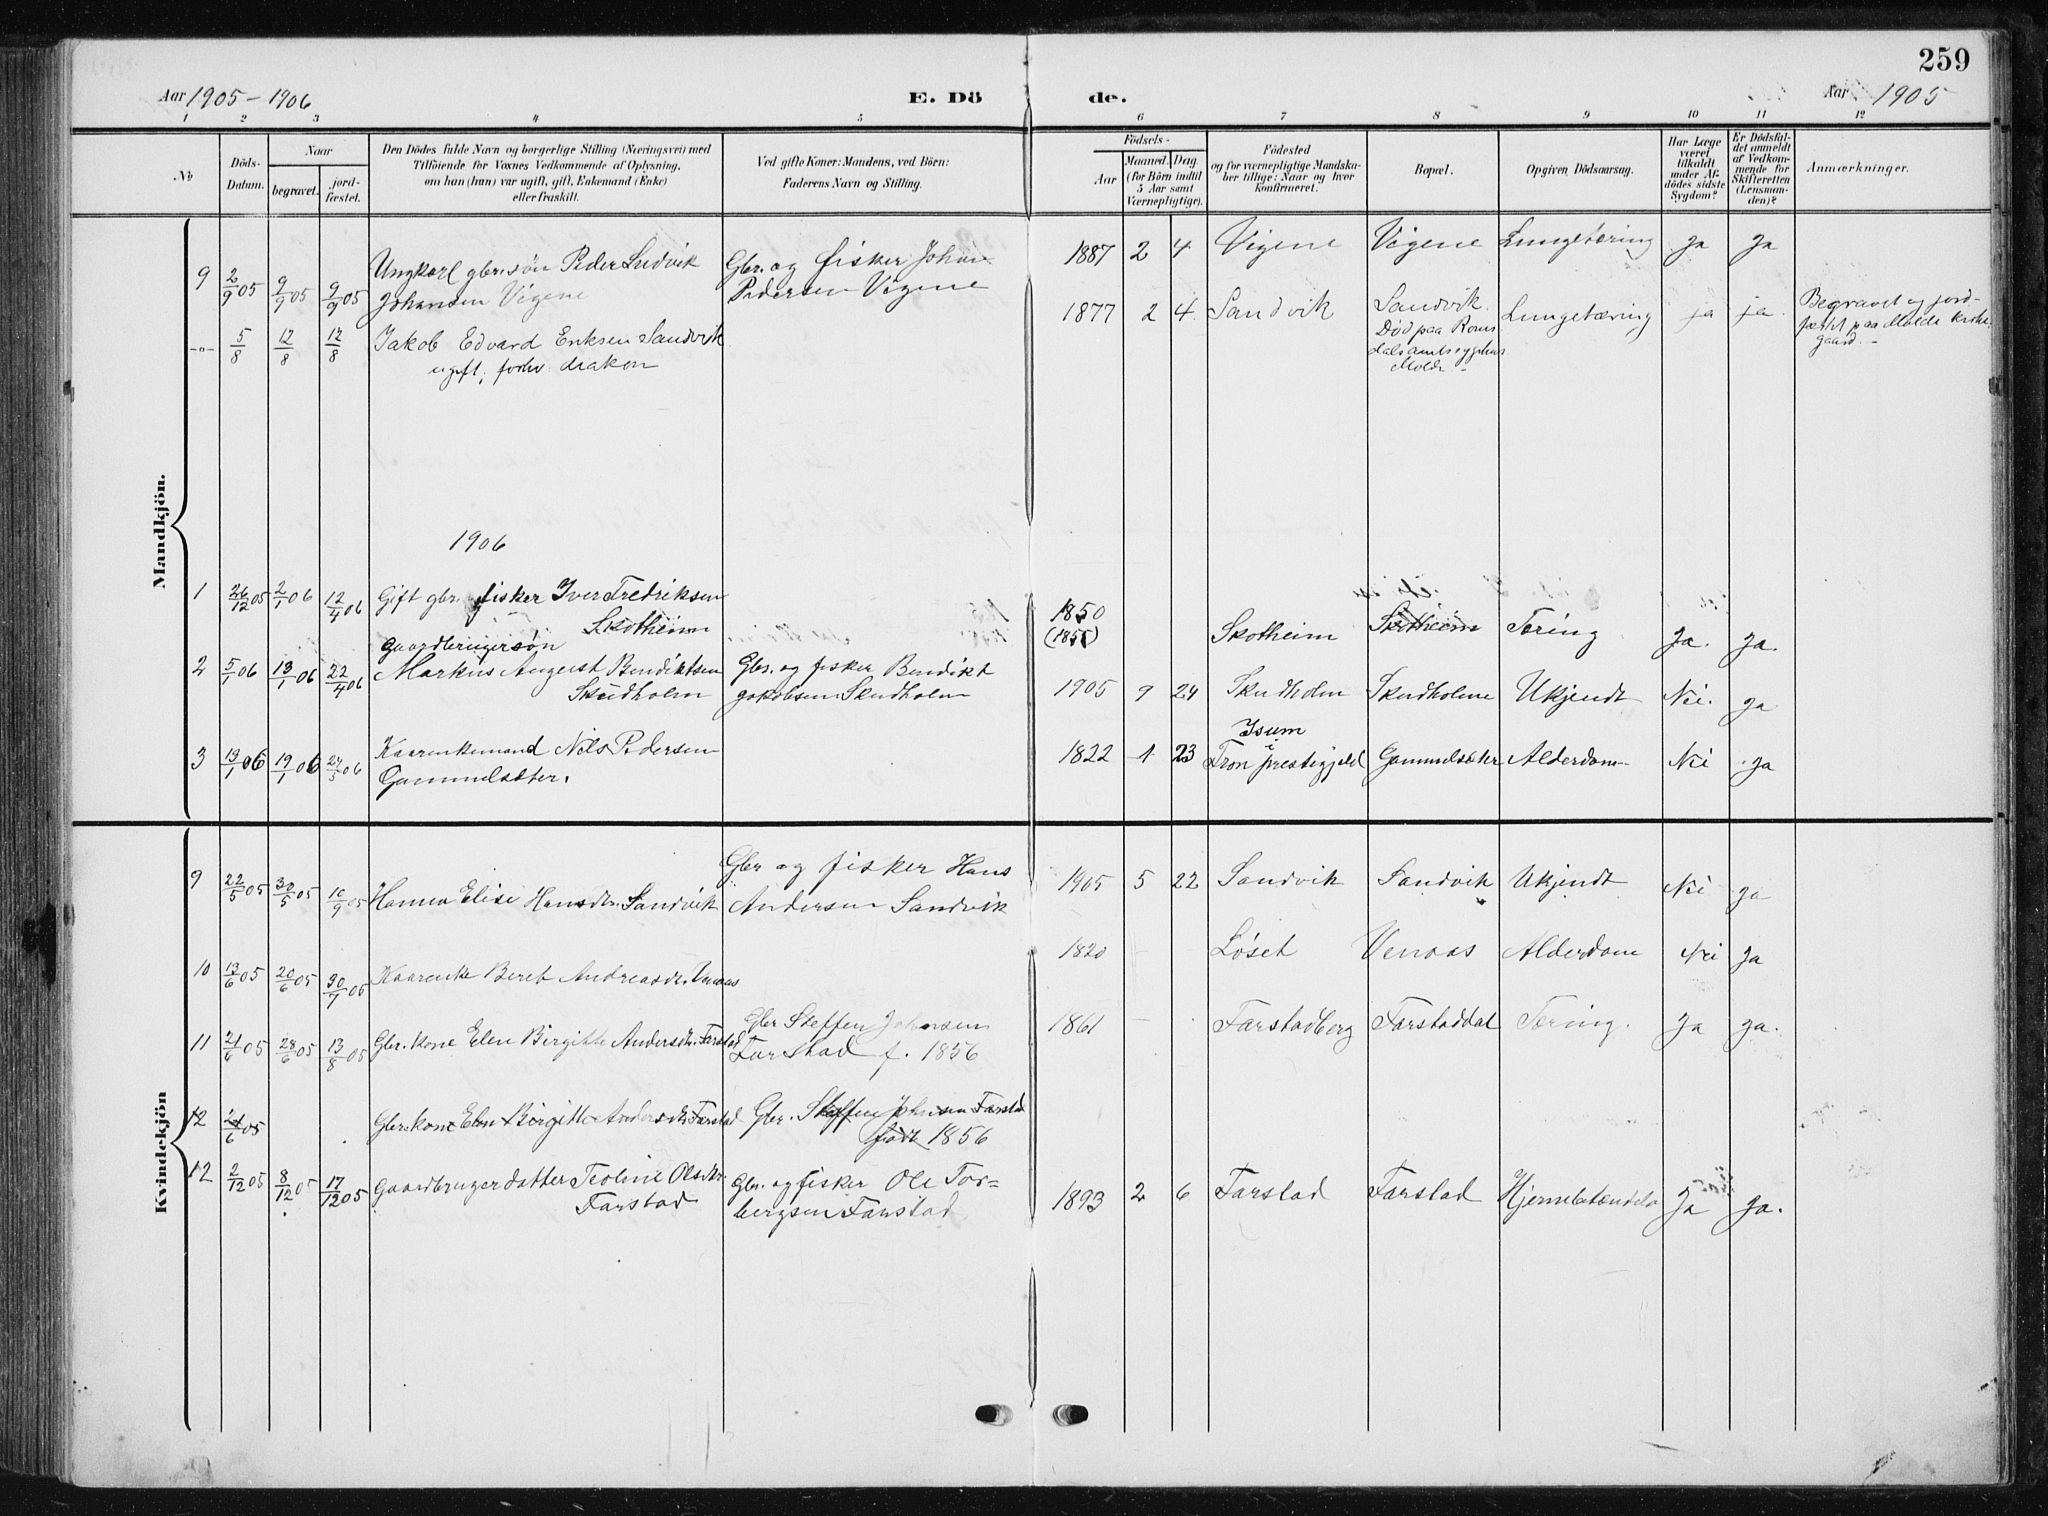 259
Aar 1905 - 1906 E. Dö de. Aar 1905
1 2 3 4 5 6 7 8 9 10 11 12
№
Döds-
Datum.
Naar
begravet.
jord-
fæstet.
Den Dödes fulde Navn og borgerlige Stilling (Næringsvei) med
Tilföiende for Voxnes Vedkommende af Oplysning,
om han (hun) var ugift, gift, Enkemand (Enke)
eller fraskilt.
Ved gifte Koner: Mandens, ved Börn:
Faderens Navn og Stilling.
Födsels-
Aar
Maaned. Dag
(for Börn indtil
5 Aar samt
Værnepligtige).
Födested
og for værnepligtige Mandska-
ber tillige: Naar og hvor
konfirmeret.
Bopæl.
Opgiven Dödsaarsag.
Har Læge
været
tilkaldt
under Af-
dödes sidste
Sygdom?
Er Dödsfal-
det anmeldt
af Vedkom-
mende for
Skifteretten
(Lensman-
den)?
Anmærkninger.
Mandkjön.
9 2/9 05 9/9 05 9/9 05 Ungkarl gbr.søn Peder Ludvik Gbr. og fisker Johan 1887 2 4 Vigene Vigene Lungetæring Ja Ja
Johansen Vigene Pedersen Vigene
-"- 5/8 12/8 12/8 Jakob Edvard Eriksen Sandvik 1877 2 4 Sandvik Sandvik. Lungetæring ja ja. Begravet og jord-
ugift, forhv diakon Død paa Roms fæstet paa Molde kirke
dals amtssygehus gaard. -
Molde -
1906
1 26/12 05 2/1 06 12/4 06 Gift gbr. fisker Iver Fredriksen 1850
Skotheim (1851) Skotheim Skotheim Tæring Ja. Ja.
Gaardbrugersøn
2 5/1 06 13/1 06 22/4 06 Markus August Bendiktsen Gbr. og fisker Bendikt
Skudholm Jakobsen Skudholm 1905 9 24 Skudholm Skudholme Ukjendt Nei. Ja
Isum
3 13/1 06 19/1 06 24/5 06 Kaarenkemand Nils Pedersen 1822 1 23 i
Gammelsæter. Fron prestegjeld Gammelsæter Alderdom- Nei Ja
Kvindekjön
9 22/5 05 30/5 05 10/9 05 Hanna Elise Hansdtr. Sandvik Gbr og fisker Hans 1905 5 22 Sandvik Sandvik Ukjendt Nei Ja
Andersen Sandvik
10 13/6 05 20/6 05 30/7 05 Kaarenke Beret Andreasdtr. Venaas 1820 - Løset Venaas Alderdom Nei Ja
11 21/6 05 28/6 05 13/8 05 Gbr. kone Elen Birgitte Andersdtr. Farstad Gbr Steffen Johnsen 1861 - Farstadberg Farstaddal Tæring. Ja Ja.
Farstad f. 1856
12 21/6 05 Gbr. kone Elen Birgitte Andersdtr. Farstad Gbr. Steffen Johnsen Farstad
født 1856
12 2/12 05 8/12 05 17/12 05 Gaardbrugerdatter Teoline Olsdtr. Gbr. og fisker Ole Tor- 1893 2 6 Farstad Farstad Hjernebetændelse Ja Ja.
Farstad bergsen Farstad